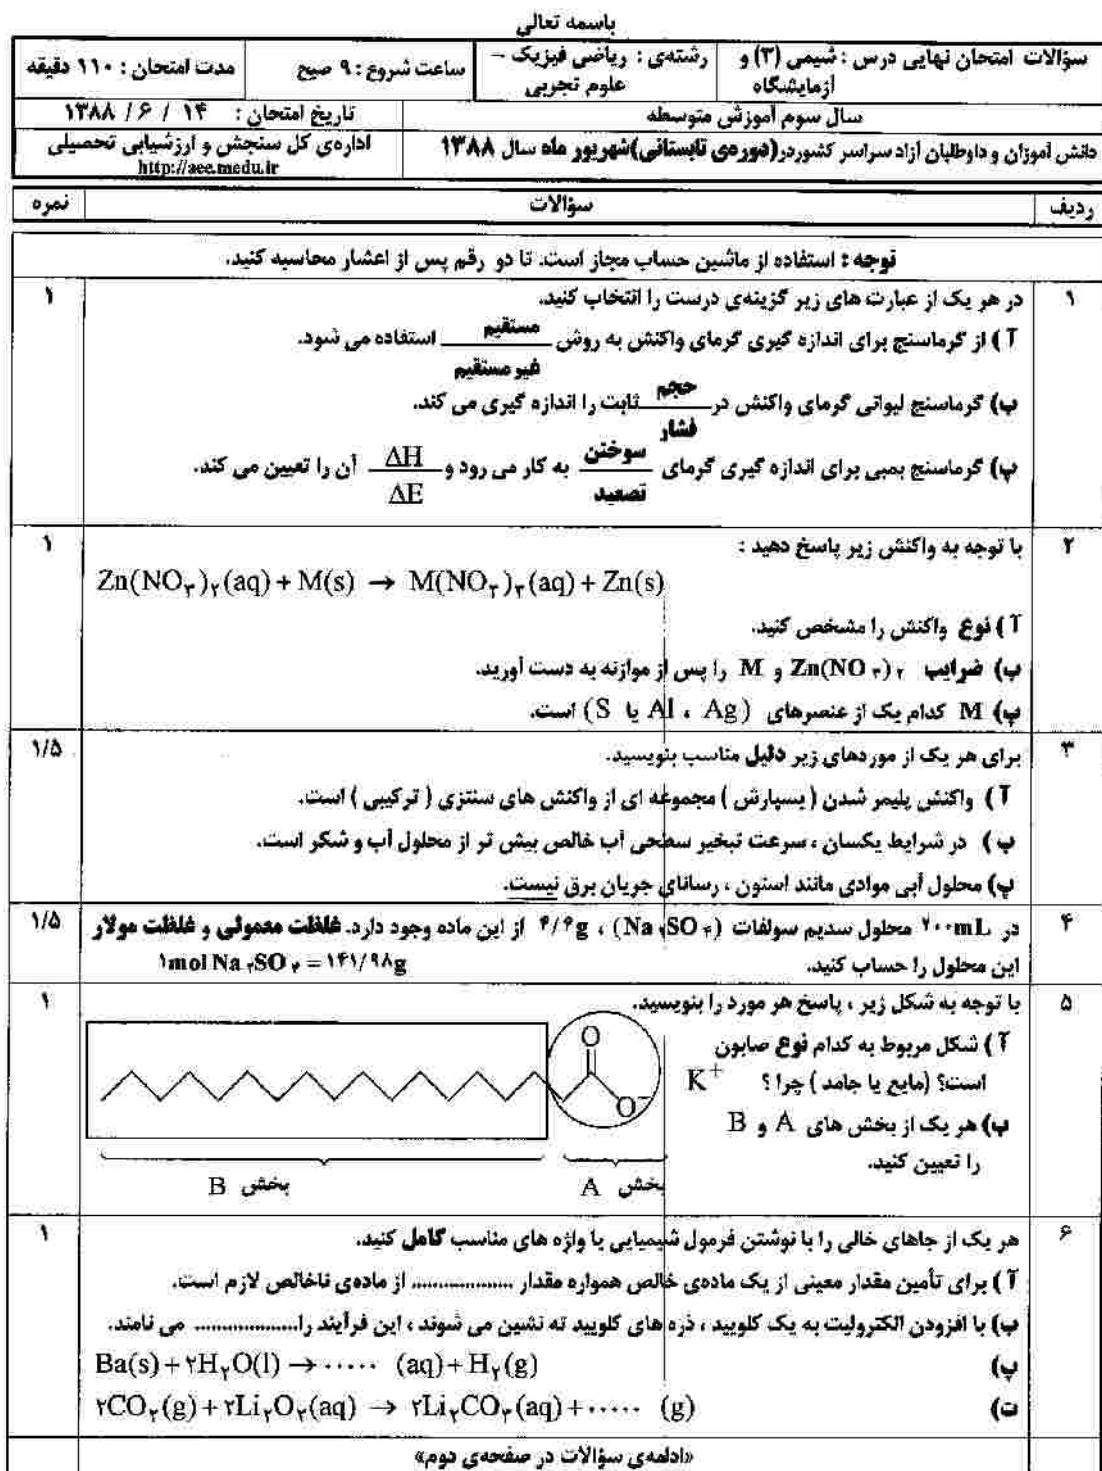 باسمه تعالی
سؤالات امتحان نهایی درس : شیمی (۳) و آزمایشگاه
رشته‌ی : ریاضی فیزیک – علوم تجربی
ساعت شروع : ۹ صبح
مدت امتحان : ۱۱۰ دقیقه
سال سوم آموزش متوسطه
تاریخ امتحان : ۱۴ / ۶ / ۱۳۸۸
دانش آموزان و داوطلبان آزاد سراسر کشوردر(دوره‌ی تابستانی)شهریور ماه سال ۱۳۸۸
اداره‌ی کل سنجش و ارزشیابی تحصیلی
http://aee.medu.ir
ردیف سؤالات نمره
توجه : استفاده از ماشین حساب مجاز است. تا دو رقم پس از اعشار محاسبه کنید.
۱ در هر یک از عبارت های زیر گزینه‌ی درست را انتخاب کنید. ۱
آ ) از گرماسنج برای اندازه گیری گرمای واکنش به روش مستقیم / غیر مستقیم استفاده می شود.
ب) گرماسنج لیوانی گرمای واکنش در حجم / فشار ثابت را اندازه گیری می کند.
پ) گرماسنج بمبی برای اندازه گیری گرمای سوختن / تصعید به کار می رود و ΔH / ΔE آن را تعیین می کند.
۲ با توجه به واکنش زیر پاسخ دهید : ۱
Zn(NO۳)۲(aq) + M(s) → M(NO۳)۳(aq) + Zn(s)
آ ) نوع واکنش را مشخص کنید.
ب) ضرایب Zn(NO۳)۲ و M را پس از موازنه به دست آورید.
پ) M کدام یک از عنصرهای (Ag ، Al یا S) است.
۳ برای هر یک از موردهای زیر دلیل مناسب بنویسید. ۱/۵
آ ) واکنش پلیمر شدن ( بسپارش ) مجموعه ای از واکنش های سنتزی ( ترکیبی ) است.
ب ) در شرایط یکسان ، سرعت تبخیر سطحی آب خالص بیش تر از محلول آب و شکر است.
پ) محلول آبی موادی مانند استون ، رسانای جریان برق نیست.
۴ در ۲۰۰mL محلول سدیم سولفات (Na۲SO۴) ، ۴/۶g از این ماده وجود دارد. غلظت معمولی و غلظت مولار ۱/۵
این محلول را حساب کنید. ۱mol Na۲SO۴ = ۱۴۱/۹۸g
۵ با توجه به شکل زیر ، پاسخ هر مورد را بنویسید. ۱
آ ) شکل مربوط به کدام نوع صابون
است؟ (مایع یا جامد ) چرا ؟
ب) هر یک از بخش های A و B
را تعیین کنید.
O
O⁻
K⁺
بخش A
بخش B
۶ هر یک از جاهای خالی را با نوشتن فرمول شیمیایی یا واژه های مناسب کامل کنید. ۱
آ ) برای تأمین مقدار معینی از یک ماده‌ی خالص همواره مقدار .................. از ماده‌ی ناخالص لازم است.
ب) با افزودن الکترولیت به یک کلویید ، ذره های کلویید ته نشین می شوند ، این فرآیند را.................. می نامند.
پ) Ba(s) + ۲H۲O(l) → ····· (aq) + H۲(g)
ت) ۲CO۲(g) + ۲Li۲O۲(aq) → ۲Li۲CO۳(aq) + ····· (g)
«ادامه‌ی سؤالات در صفحه‌ی دوم»